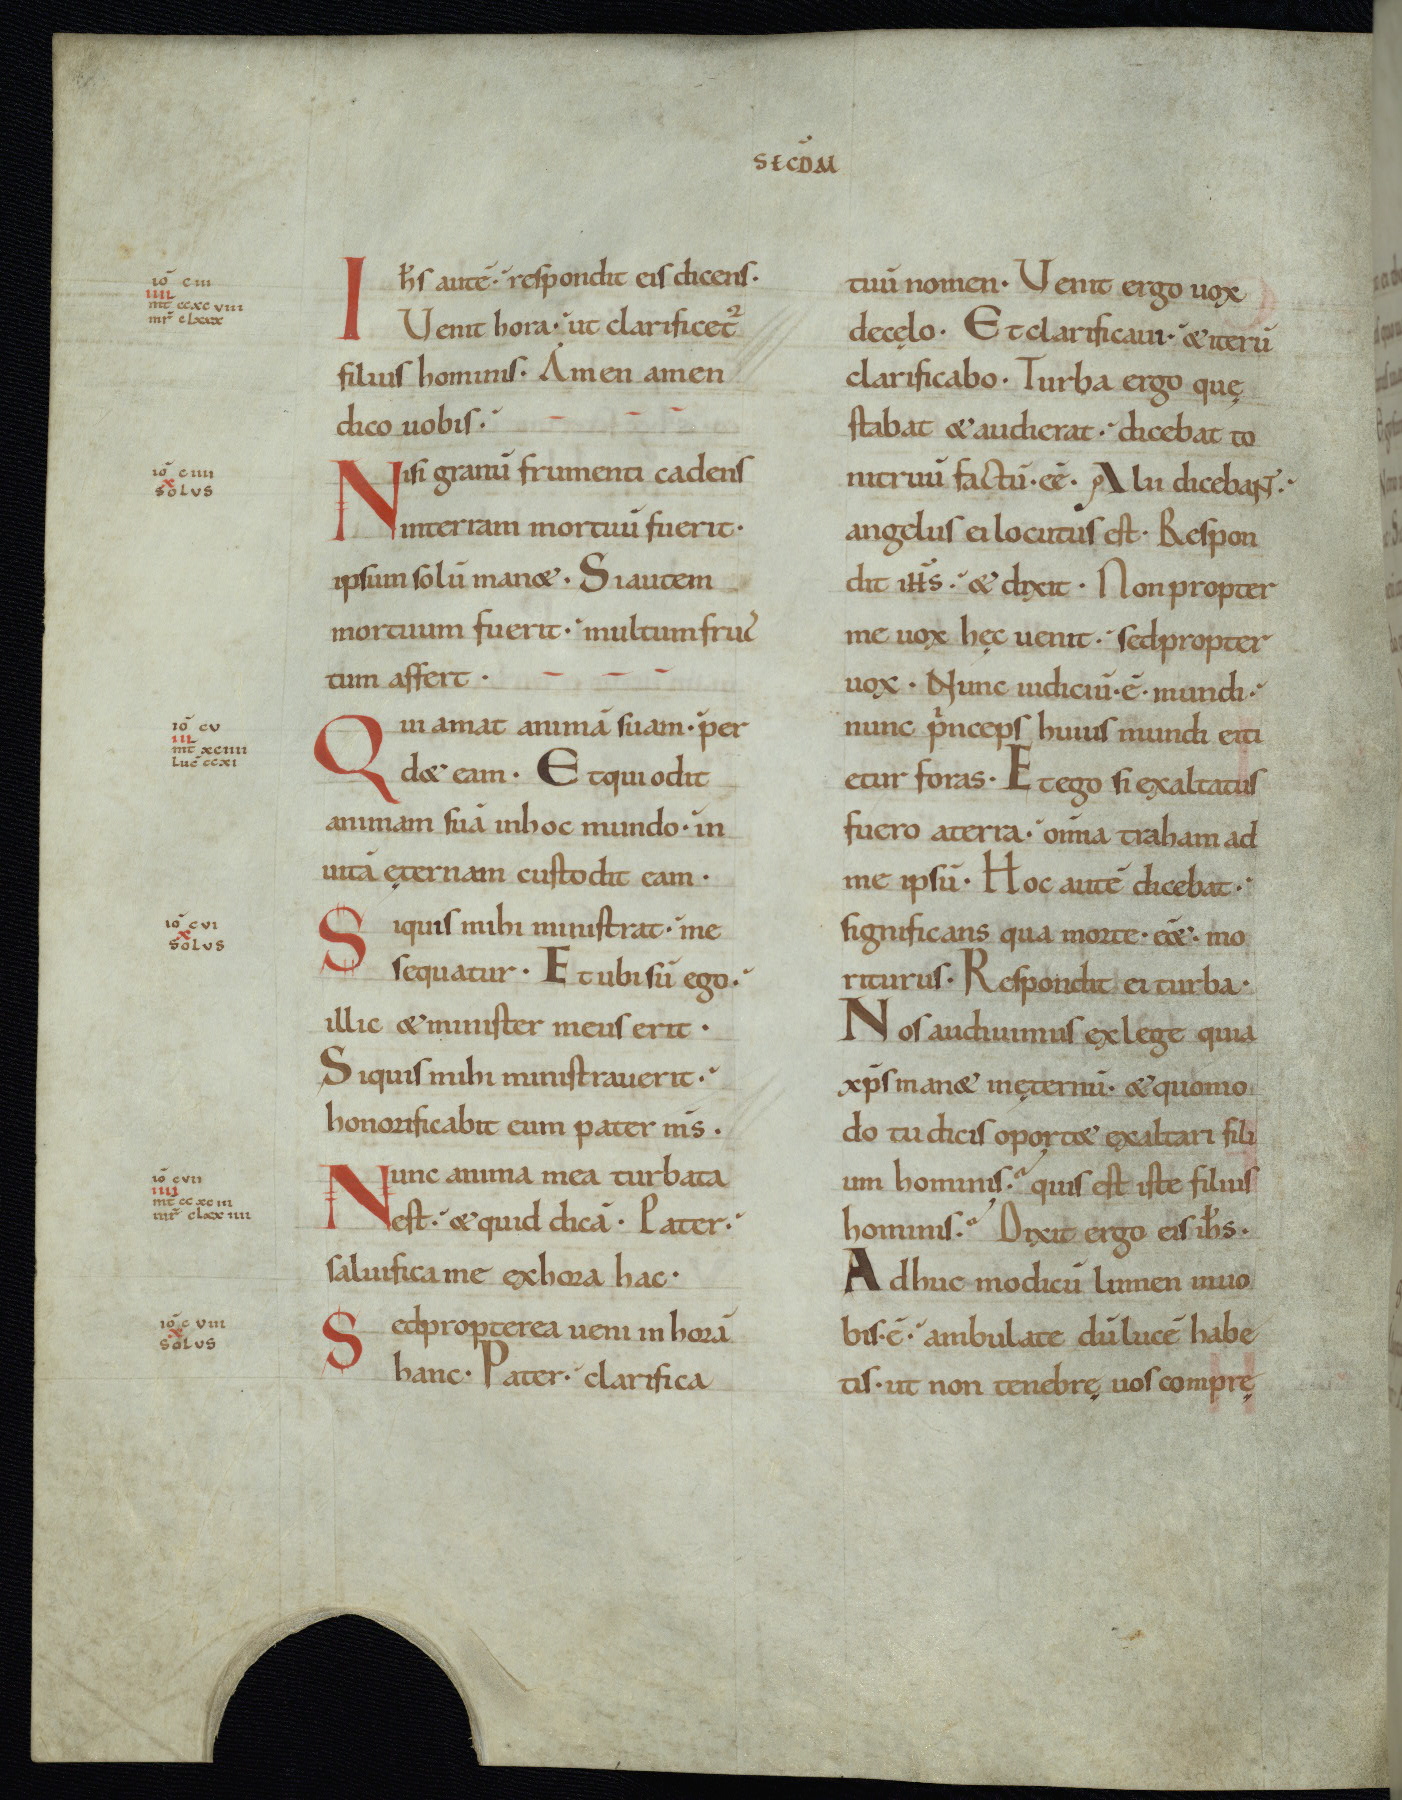 SECDM
iō ciii
iiii
mt ccxcviii
mr clxxx
Ihs autē respondit eis dicens·
Venit hora· ut clarificet
filius hominis· Amen amen
dico uobis·
iō ciiii
x
solus
Nisi granū frumenti cadens
interram mortuū fuerit·
ipsum solū man&· Siautem
mortuum fuerit· multumfruc
tum affert·
iō cv
iii
mt xciiii
Luc ccxi
Qui amat animā suam· per
d& eam· Etquiodit
animam suā inhoc mundo· in
uitā ęternam custodit eam·
iō cvi
x
solus
Siquis mihi ministrat· me
sequatur· Et ubi sū ego·
illic &minister meus erit·
Siquis mihi ministrauerit·
honorificabit eum pater ms·
iō cvii
iiii
mt ccxciii
mr clxxiiii
Nunc anima mea turbata
est· &quid dicā· Pater·
saluificame exhora hac·
iō cviii
x
solus
Sedpropterea ueni in horā
hanc· Pater· clarifica
tuū nomen· Venit ergo uox
decęlo· Et clarificaui· &iterū
clarificabo· Turba ergo quę
stabat &audierat· dicebat to
nitruū factū·eē· Alii dicebaNT·
angelus ei locutus est· Respon
dit ihs· & dixit· Non propter
me uox hęc uenit· sedpropter
uox· Nunc iudiciū·ē· mundi·
nunc pinceps huius mundi eici
etur foras· Et ego si exaltatus
fuero aterra· omīa traham ad
me ipsū· Hoc autē dicebat·
significans qua morte· e&· mo
riturus· Respondit ei turba·
Nos audiuimus exlege quia
xps man& inęternū· &quomo
do tu dicis oport& exaltari fili
um hominis· quis est iste filius
hominis· Dixit ergo eis ihs·
Adhuc modicū lumen inuo
bis·ē· ambulate dū lucē habe
tis· ut non tenebrę uos comprę